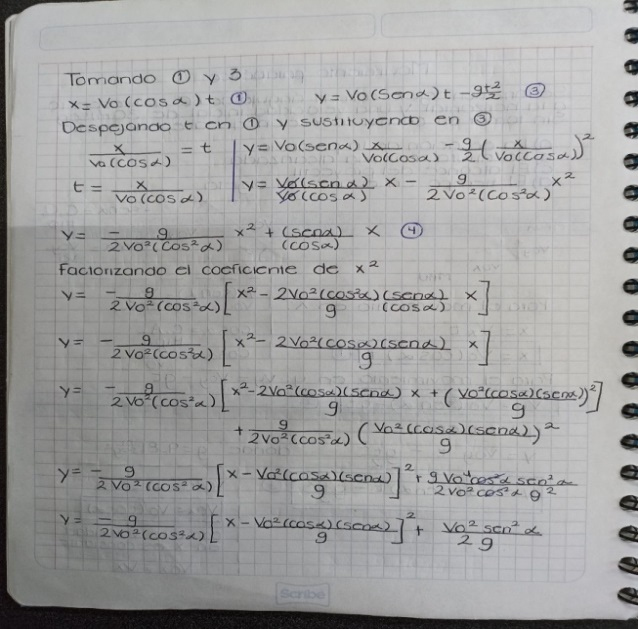 Tomando ① y 3
x = Vo(cosα)t ①     y = Vo(senα)t - gt²/2 ③
Despejando t en ① y sustituyendo en ③
x/Vo(cosα) = t | y = Vo(senα) x/Vo(cosα) - g/2 (x/Vo(cosα))²
t = x/Vo(cosα) | y = Vo(senα)/Vo(cosα) x - g/2Vo²(cos²α) x²
y = -g/2Vo²(cos²α) x² + (senα)/(cosα) x ④
Factorizando el coeficiente de x²
y = -g/2Vo²(cos²α) [x² - 2Vo²(cos²α)(senα)/g(cosα) x]
y = -g/2Vo²(cos²α) [x² - 2Vo²(cosα)(senα)/g x]
y = -g/2Vo²(cos²α) [x² - 2Vo²(cosα)(senα)/g x + (Vo²(cosα)(senα)/g)²]
+ g/2Vo²(cos²α) (Vo²(cosα)(senα)/g)²
y = -g/2Vo²(cos²α) [x - Vo²(cosα)(senα)/g]² + gVo⁴cos²α sen²α/2Vo²cos²α g²
y = -g/2Vo²(cos²α) [x - Vo²(cosα)(senα)/g]² + Vo² sen²α/2g
Scribe